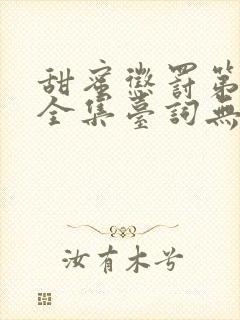 甜蜜懲罰第
全集臺詞無
汝有木兮